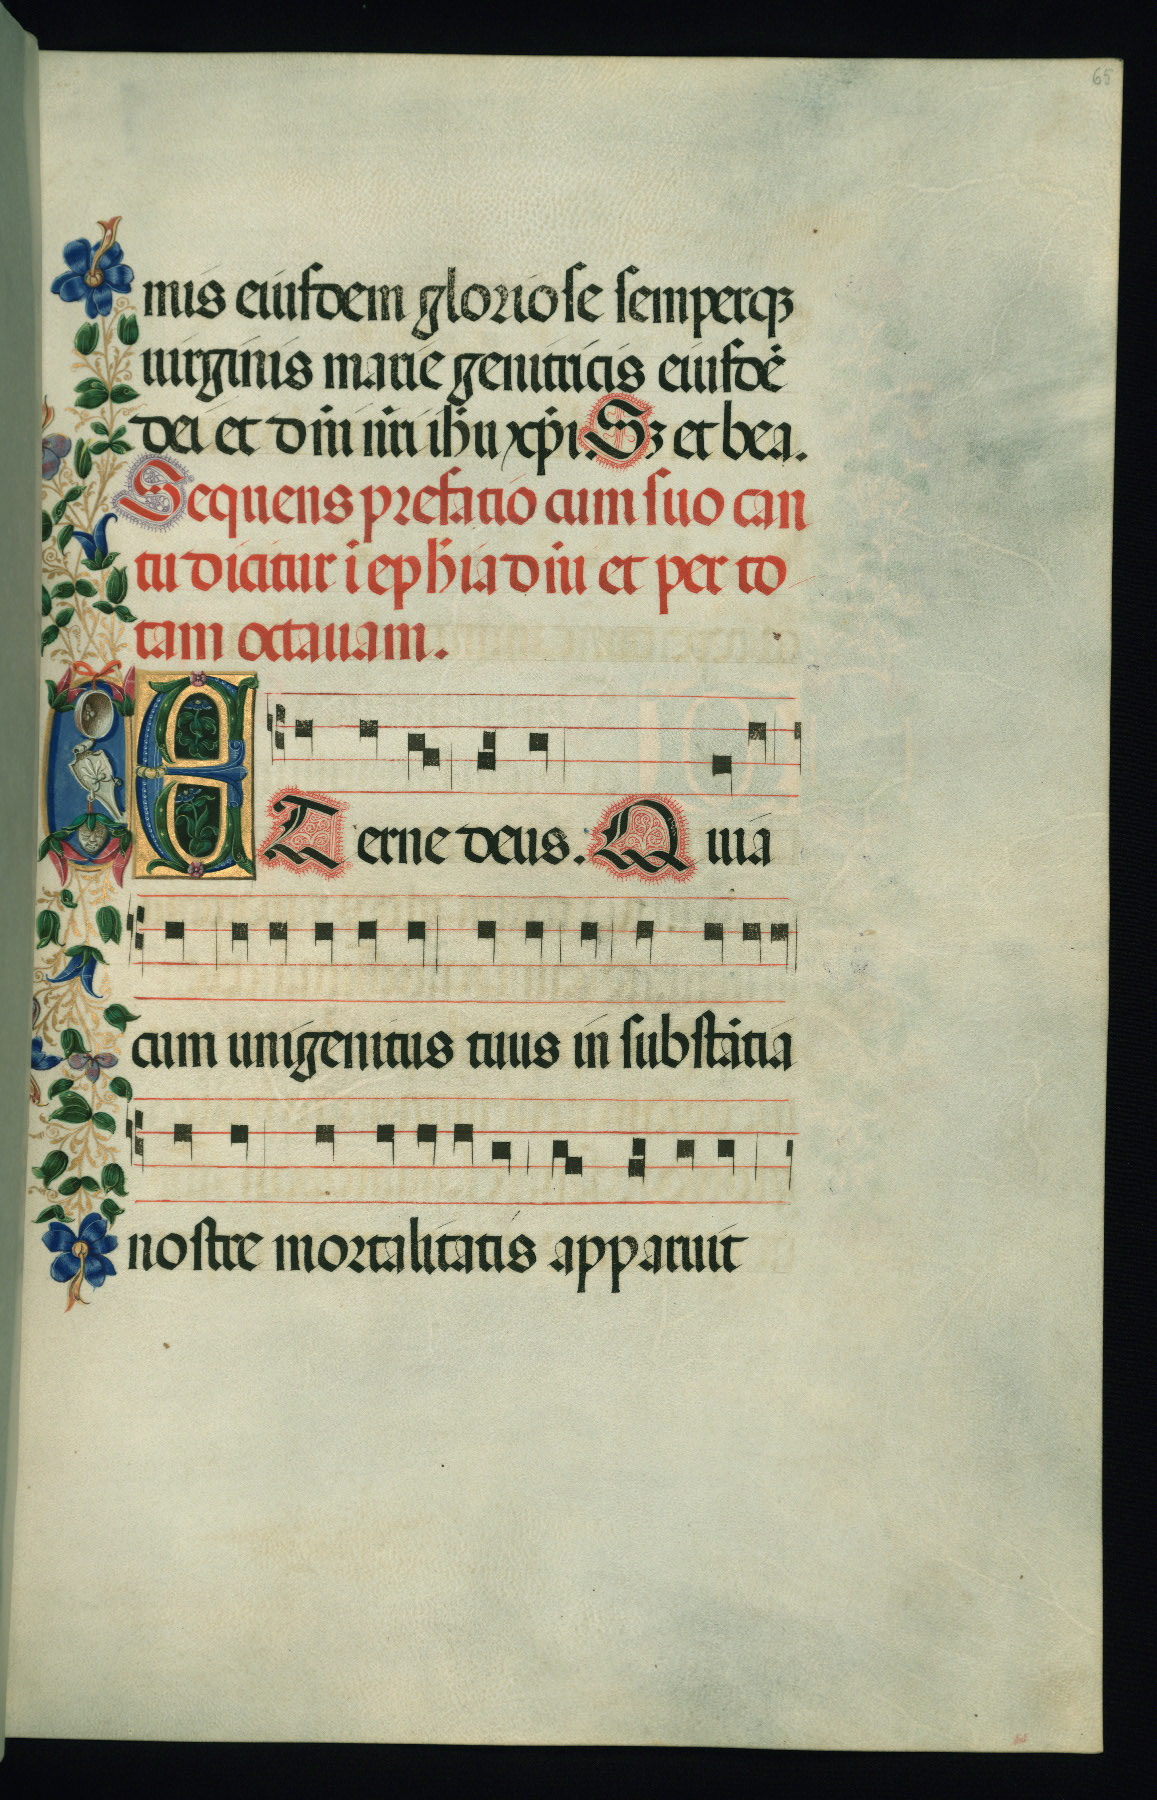 65
mis eiusdem gloriose semperqꝫ
uirginis marie genitricis eiusdē
dei et dn̄i nr̄i ih̄u xp̄i. Sꝫ et bea.
Sequens prefatio cum suo can
tu dicitur ī eph̄ia dn̄i et per to
tam octauam.
E Terne deus. Quia
cum unigenitus tuus in substātia
nostre mortalitatis apparuit